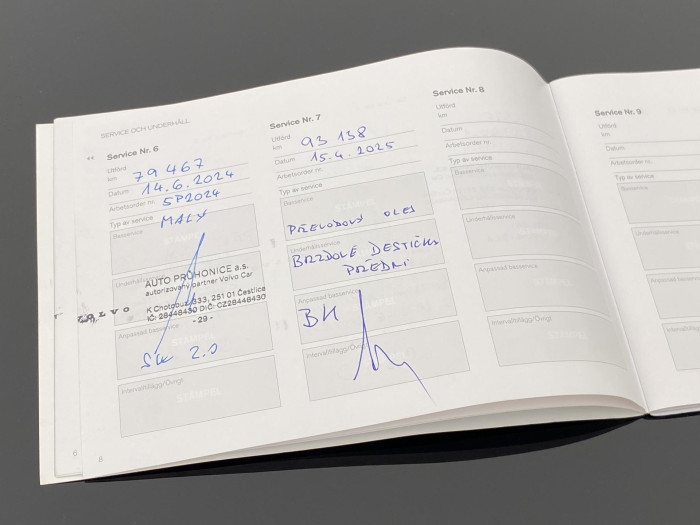 SERVICE OCH UNDERHÅLL
Service Nr. 6
Utförd
km 79 467
Datum 14.6.2024
Arbetsorder nr. SP2024
Typ av service MALY
Basservice
AUTO PRŮHONICE a.s.
autorizovaný partner Volvo Car
K Chotobuz 333, 251 01 Čestlice
IČ: 28448430 DIČ: CZ28448430
- 29 -
Anpassad basservice
Intervalltillägg/Övrigt
Service Nr. 7
Utförd
km 93 138
Datum 15.4.2025
Arbetsorder nr.
Typ av service
Basservice
PŘEVODOVÝ OLEJ
Underhållsservice
BRZDOVÉ DESTIČKY
PŘEDNÍ
Anpassad basservice
BK
Intervalltillägg/Övrigt
Service Nr. 8
Utförd
km
Datum
Arbetsorder nr.
Typ av service
Basservice
Underhållsservice
Anpassad basservice
Intervalltillägg/Övrigt
Service Nr. 9
Utförd
km
Datum
Arbetsorder nr.
Typ av service
Basservice
Underhållsservice
Anpassad basservice
Intervalltillägg/Övrigt
6
8